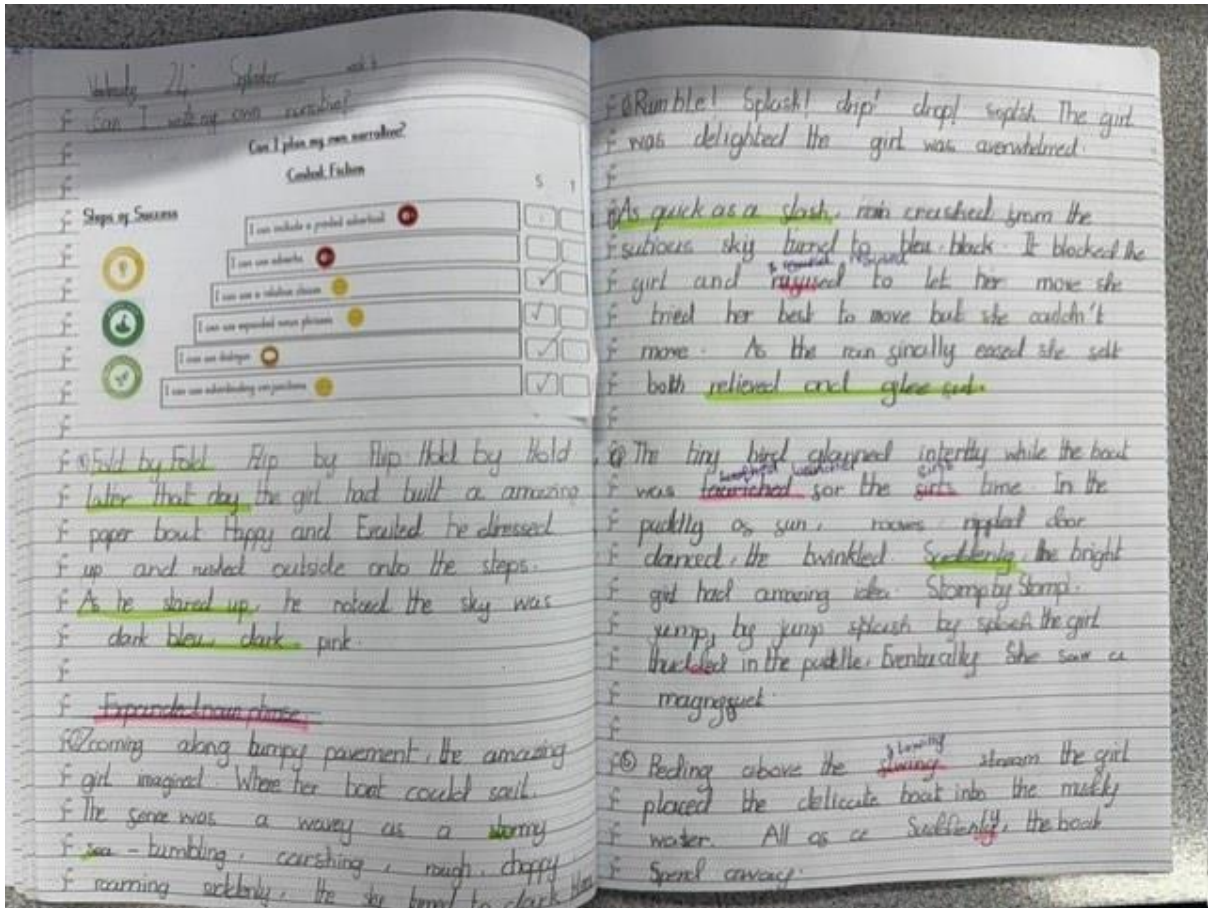 Wednesday 24th September
Can I write my own narrative?
Can I plan my own narrative?
Context: Fiction
S T
Steps of Success
I can include a fronted adverbial
I can use adverbs
I can use a relative clause
I can use expanded noun phrases
I can use dialogue
I can use subordinating conjunctions
① Fold by Fold Flip by Flip Hold by Hold
later that day the girl had built a amazing
paper bout Happy and Excited he dressed
up and rushed outside onto the steps.
As he stared up, he noticed the sky was
dark bleu, dark pink.
Expanded noun phrase
② Zooming along bumpy pavement, the amazing
girl imagined. Where her boat could sail.
The sence was a wavey as a stormy
sea - bumbling, carshing, rough, choppy
roaming suddenly, the sky turned to dark
Rumble! Splash! drip! drop! splish The girl
was delighted the girl was overwhelmed.
As quick as a slash, rain crashed from the
sky turned to bleu-black. It blocked the
girl and refused to let her move she
tried her best to move but she couldn't
move. As the rain finally eased she felt
both relieved and gleeful.
The tiny bird intertly while the boat
was launched for the first time. In the
puddly of sun, rippled
danced, the twinkled. Suddenly, the bright
girl had amazing idea. Stomp by Stomp.
jump, by jump splash by splash the girl
thudded in the puddle. Eventually She saw a
⑤ Peeling above the flowing stream the girl
placed the delicate boat into the mukky
water. All of a Suddenly, the boat
Spend away.